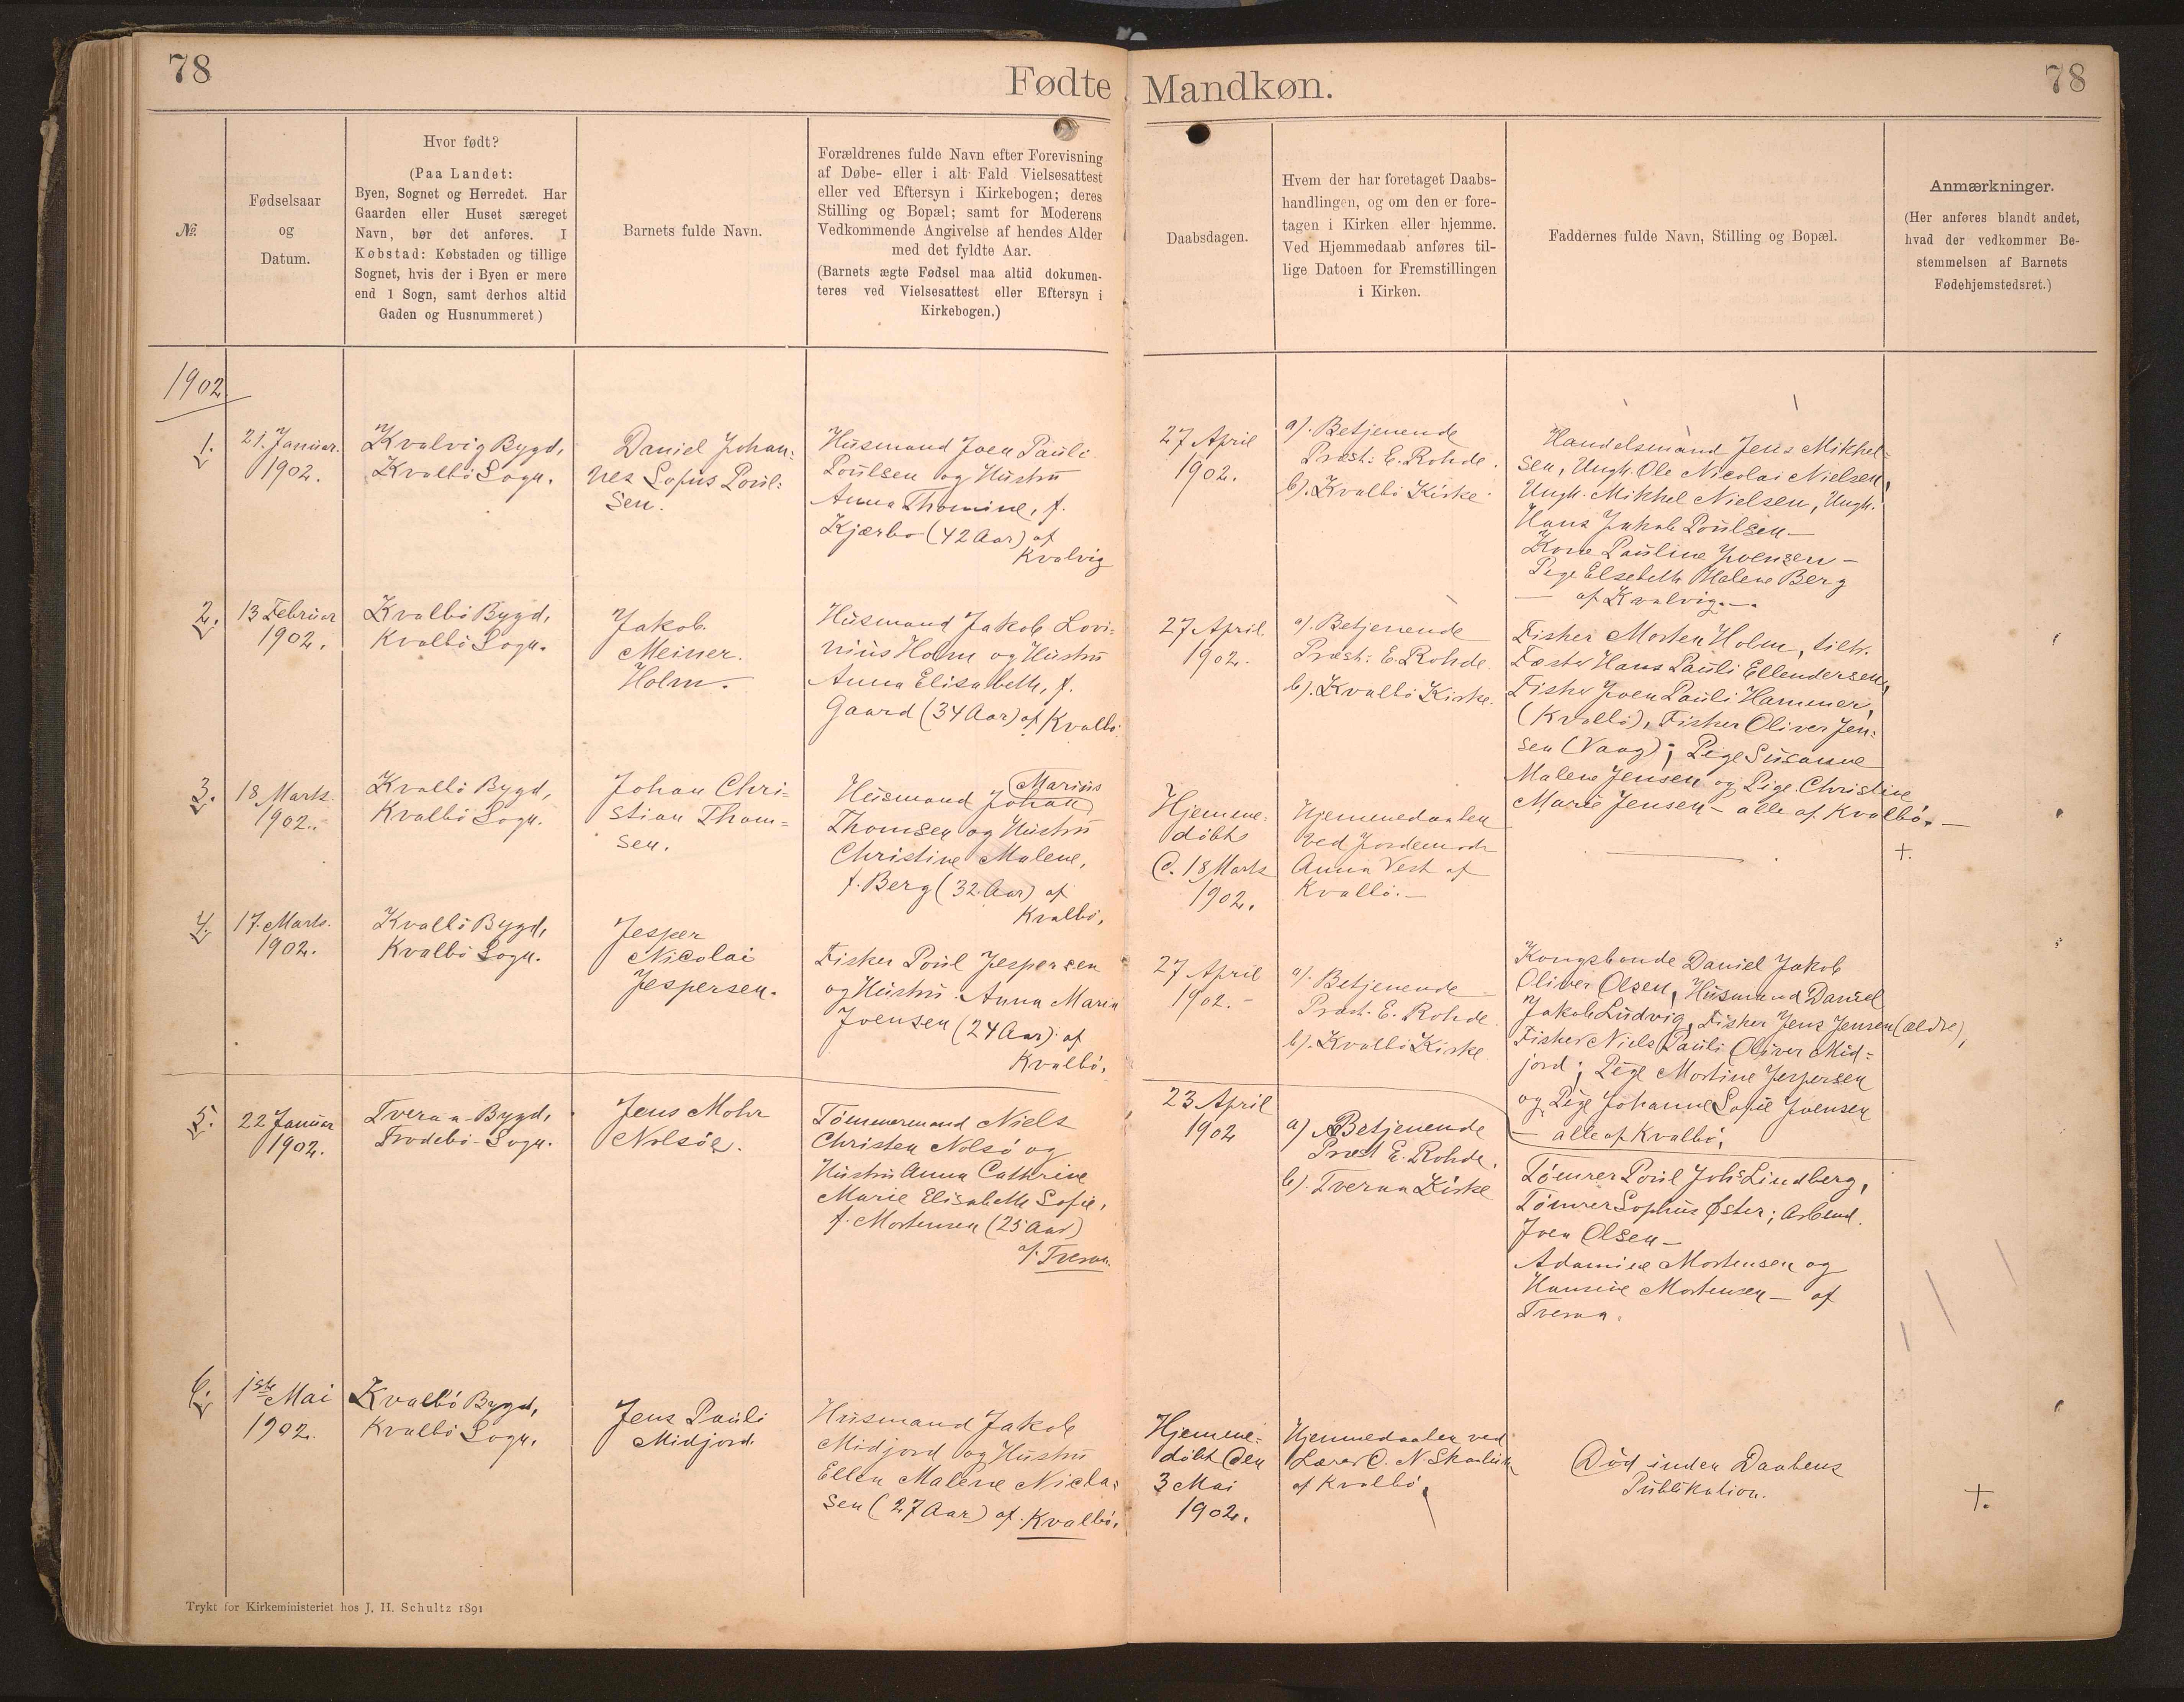 78
Fødte Mandkøn.
78
№
Fødselsaar
og
Datum.
Hvor født?
(Paa Landet:
Byen, Sognet og Herredet. Har
Gaarden eller Huset særeget
Navn, bør det anføres. I
Købstad: Købstaden og tillige
Sognet, hvis der i Byen er mere
end 1 Sogn, samt derhos altid
Gaden og Husnummeret)
Barnets fulde Navn.
Forældrenes fulde Navn efter Forevisning
af Døbe- eller i alt Fald Vielsesattest
eller ved Eftersyn i Kirkebogen; deres
Stilling og Bopæl; samt for Moderens
Vedkommende Angivelse af hendes Alder
med det fyldte Aar.
(Barnets ægte Fødsel maa altid dokumen-
teres ved Vielsesattest eller Eftersyn i
Kirkebogen.)
Daabsdagen.
Hvem der har foretaget Daabs-
handlingen, og om den er fore-
tagen i Kirken eller hjemme.
Ved Hjemmedaab anføres til-
lige Datoen for Fremstillingen
i Kirken.
Faddernes fulde Navn, Stilling og Bopæl.
Anmærkninger.
(Her anføres blandt andet,
hvad der vedkommer Be-
stemmelsen af Barnets
Fødehjemstedsret.)
1902
1.
21. Januar.
1902.
Kvalvig Bygd,
Kvalbö Sogn.
Daniel Johan-
nes Sofus Poul-
sen.
Husmand Joen Pauli
Poulsen og Hustru
Anna Thomine, f.
Kjærbo (42 Aar) af
Kvalvig
27 April
1902.
a). Betjenende
Præst: E. Rohde.
b). Kvalbö Kirke.
Handelsmand Jens Mikkel-
sen, Ungk. Ole Nicolai Nielsen,
Ungk. Mikkel Nielsen, Ungk.
Hans Jakob Poulsen -
Kone Pauline Joensen -
Pige Elsebeth Malene Berg
- af Kvalvig. -
2.
13 Februar
1902.
Kvalbö Bygd,
Kvalbö Sogn.
Jakob
Meiner
Holm.
Husmand Jakob Lovi-
nius Holm og Hustru
Anna Elisabeth, f.
Gaard (34 Aar) af Kvalbö.
27 April
1902.
a). Betjenende
Præst: E. Rohde.
b). Kvalbö Kirke.
Fisker Morten Holm,
Fæster Hans Pauli Ellendersen,
Fisker Joen Pauli Hammer,
(Kvalbö), Fisker Oliver Jen-
sen (Vaag); Pige Susanne
Malene Jensen og Pige Christine
Marie Jensen - alle af Kvalbö. -
3.
18 Marts
1902.
Kvalbö Bygd,
Kvalbö Sogn.
Johan Chri-
stian Thom-
sen.
Marius
Husmand Johan
Thomsen og Hustru
Christine Malene,
f. Berg (32 Aar) af
Kvalbö.
Hjemme-
döbt
d. 18 Marts
1902.
Hjemmedaaben
ved Jordemoder
Anna Vest af
Kvalbö. -
†.
4.
17. Marts.
1902.
Kvalbö Bygd,
Kvalbö Sogn.
Jesper
Nicolai
Jespersen.
Fisker Poul Jespersen
og Hustru Anna Maria
Joensen (24 Aar) af
Kvalbö.
27 April
1902. -
a). Betjenende
Præst. E. Rohde.
b). Kvalbö Kirke.
Kongsbonde Daniel Jakob
Oliver Olsen, Husmand Daniel
Jakob Ludvig, Fisker Jens Jensen (ældre),
Fisker Niels Pauli Oliver Mid-
jord; Pige Mortine Jespersen
og Pige Johanne Sofie Joensen
- alle af Kvalbö.
5.
22 Januar
1902.
Tveraa Bygd,
Frodebö Sogn.
Jens Mohr
Nolsöe.
Tömmermand Niels
Christen Nolsö og
Hustru Anna Cathrine
Marie Elisabeth Sofie,
f. Mortensen (25 Aar)
af Tveraa.
23 April
1902
a) Betjenende
Præst E. Rohde.
b). Tveraa Kirke
Tömrer Poul Johs Lindberg,
Tömrer Sophus Øster; Arbmd.
Joen Olsen -
Adamine Mortensen og
Hansine Mortensen - af
Tveraa.
6.
1ste Mai
1902.
Kvalbö Bygd,
Kvalbö Sogn.
Jens Pauli
Midjord.
Husmand Jakob
Midjord og Hustru
Ellen Malene Nicla-
sen (27 Aar) af Kvalbö.
Hjemme-
döbt den
3 Mai
1902.
Hjemmedaaben ved
Lærer C. N.
af Kvalbö.
Död inden Daabens
Publikation.
†.
Trykt for Kirkeministeriet hos J. H. Schultz 1891